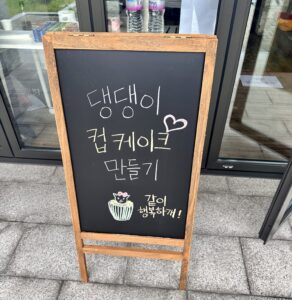 댕댕이
컵케이크
만들기
같이
행복하개!